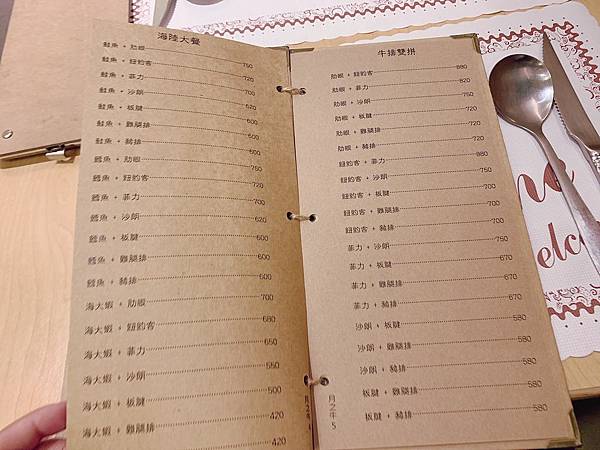 海陸大餐
鮭魚 + 肋眼 750
鮭魚 + 紐約客 720
鮭魚 + 菲力 700
鮭魚 + 沙朗 620
鮭魚 + 板腱 600
鮭魚 + 雞腿排 600
鮭魚 + 豬排 600
鱈魚 + 肋眼 750
鱈魚 + 紐約客 720
鱈魚 + 菲力 700
鱈魚 + 沙朗 620
鱈魚 + 板腱 600
鱈魚 + 雞腿排 600
鱈魚 + 豬排 600
海大蝦 + 肋眼 700
海大蝦 + 紐約客 680
海大蝦 + 菲力 650
海大蝦 + 沙朗 550
海大蝦 + 板腱 500
海大蝦 + 雞腿排 420
420
牛排雙拼
肋眼 + 紐約客 880
肋眼 + 菲力 820
肋眼 + 沙朗 750
肋眼 + 板腱 720
肋眼 + 雞腿排 720
肋眼 + 豬排 720
紐約客 + 菲力 880
紐約客 + 沙朗 750
紐約客 + 板腱 700
紐約客 + 雞腿排 700
紐約客 + 豬排 700
菲力 + 沙朗 750
菲力 + 板腱 670
菲力 + 雞腿排 670
菲力 + 豬排 670
沙朗 + 板腱 580
沙朗 + 雞腿排 580
沙朗 + 豬排 580
板腱 + 雞腿排 580
板腱 + 豬排 580
月之牛 5